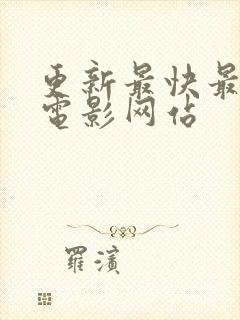 更新最快最
電影网站
羅濱